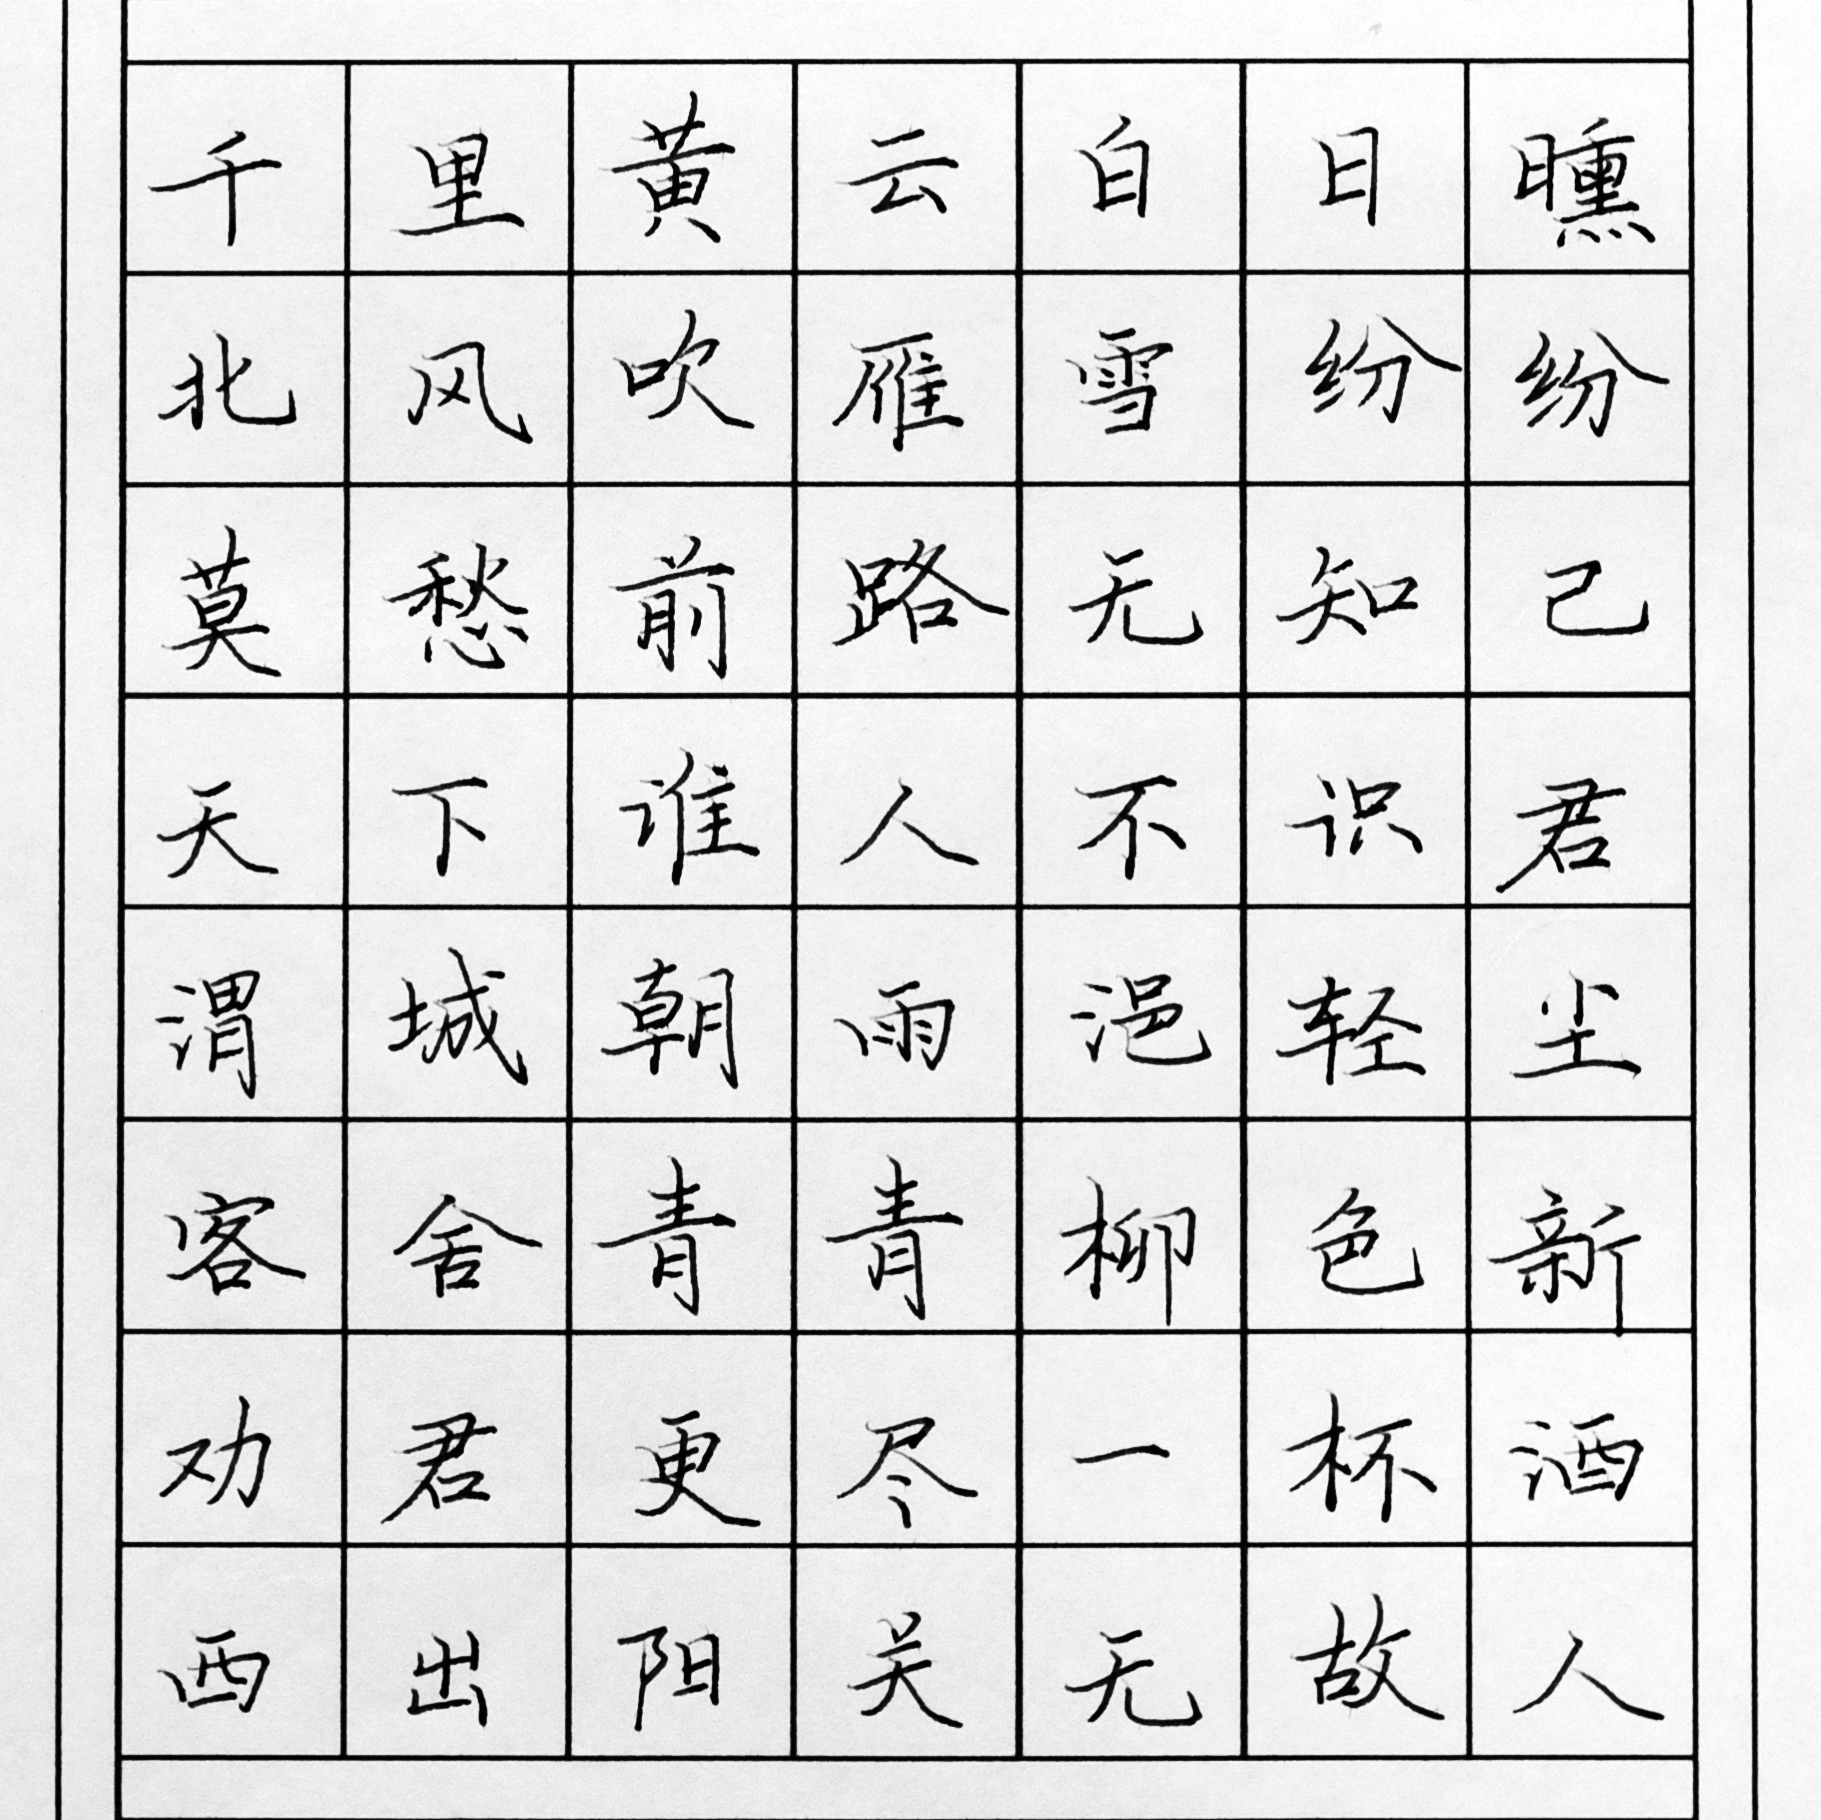 千里黄云白日曛
北风吹雁雪纷纷
莫愁前路无知己
天下谁人不识君
渭城朝雨浥轻尘
客舍青青柳色新
劝君更尽一杯酒
西出阳关无故人